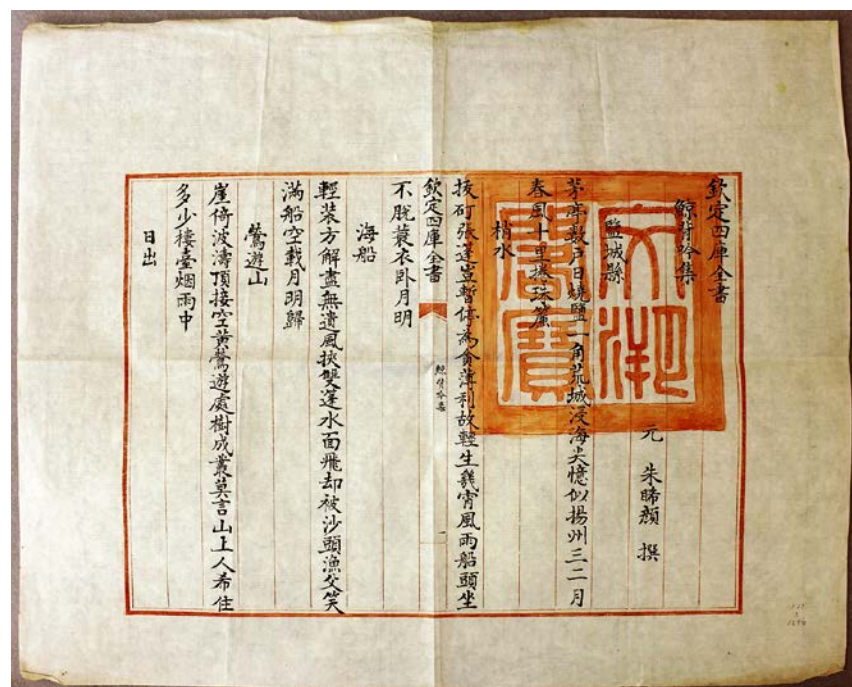 欽定四庫全書
鯨背吟集
元 朱晞顏 撰
鹽城縣
茅亭數戸日燒鹽一角荒城浸海尖憶似揚州三二月
春風十里捲珠簾
梢水
拔矴張篷豈暫停為貪薄利故輕生幾宵風雨船頭坐
欽定四庫全書
鯨背吟集
一
不脫蓑衣卧月明
海船
輕装方解盡無遺風挾雙篷水面飛却被沙頭漁父笑
滿船空載月明歸
鶯遊山
崖倚波濤頂接空黄鶯遊處樹成叢莫言山上人希住
多少樓臺烟雨中
日出